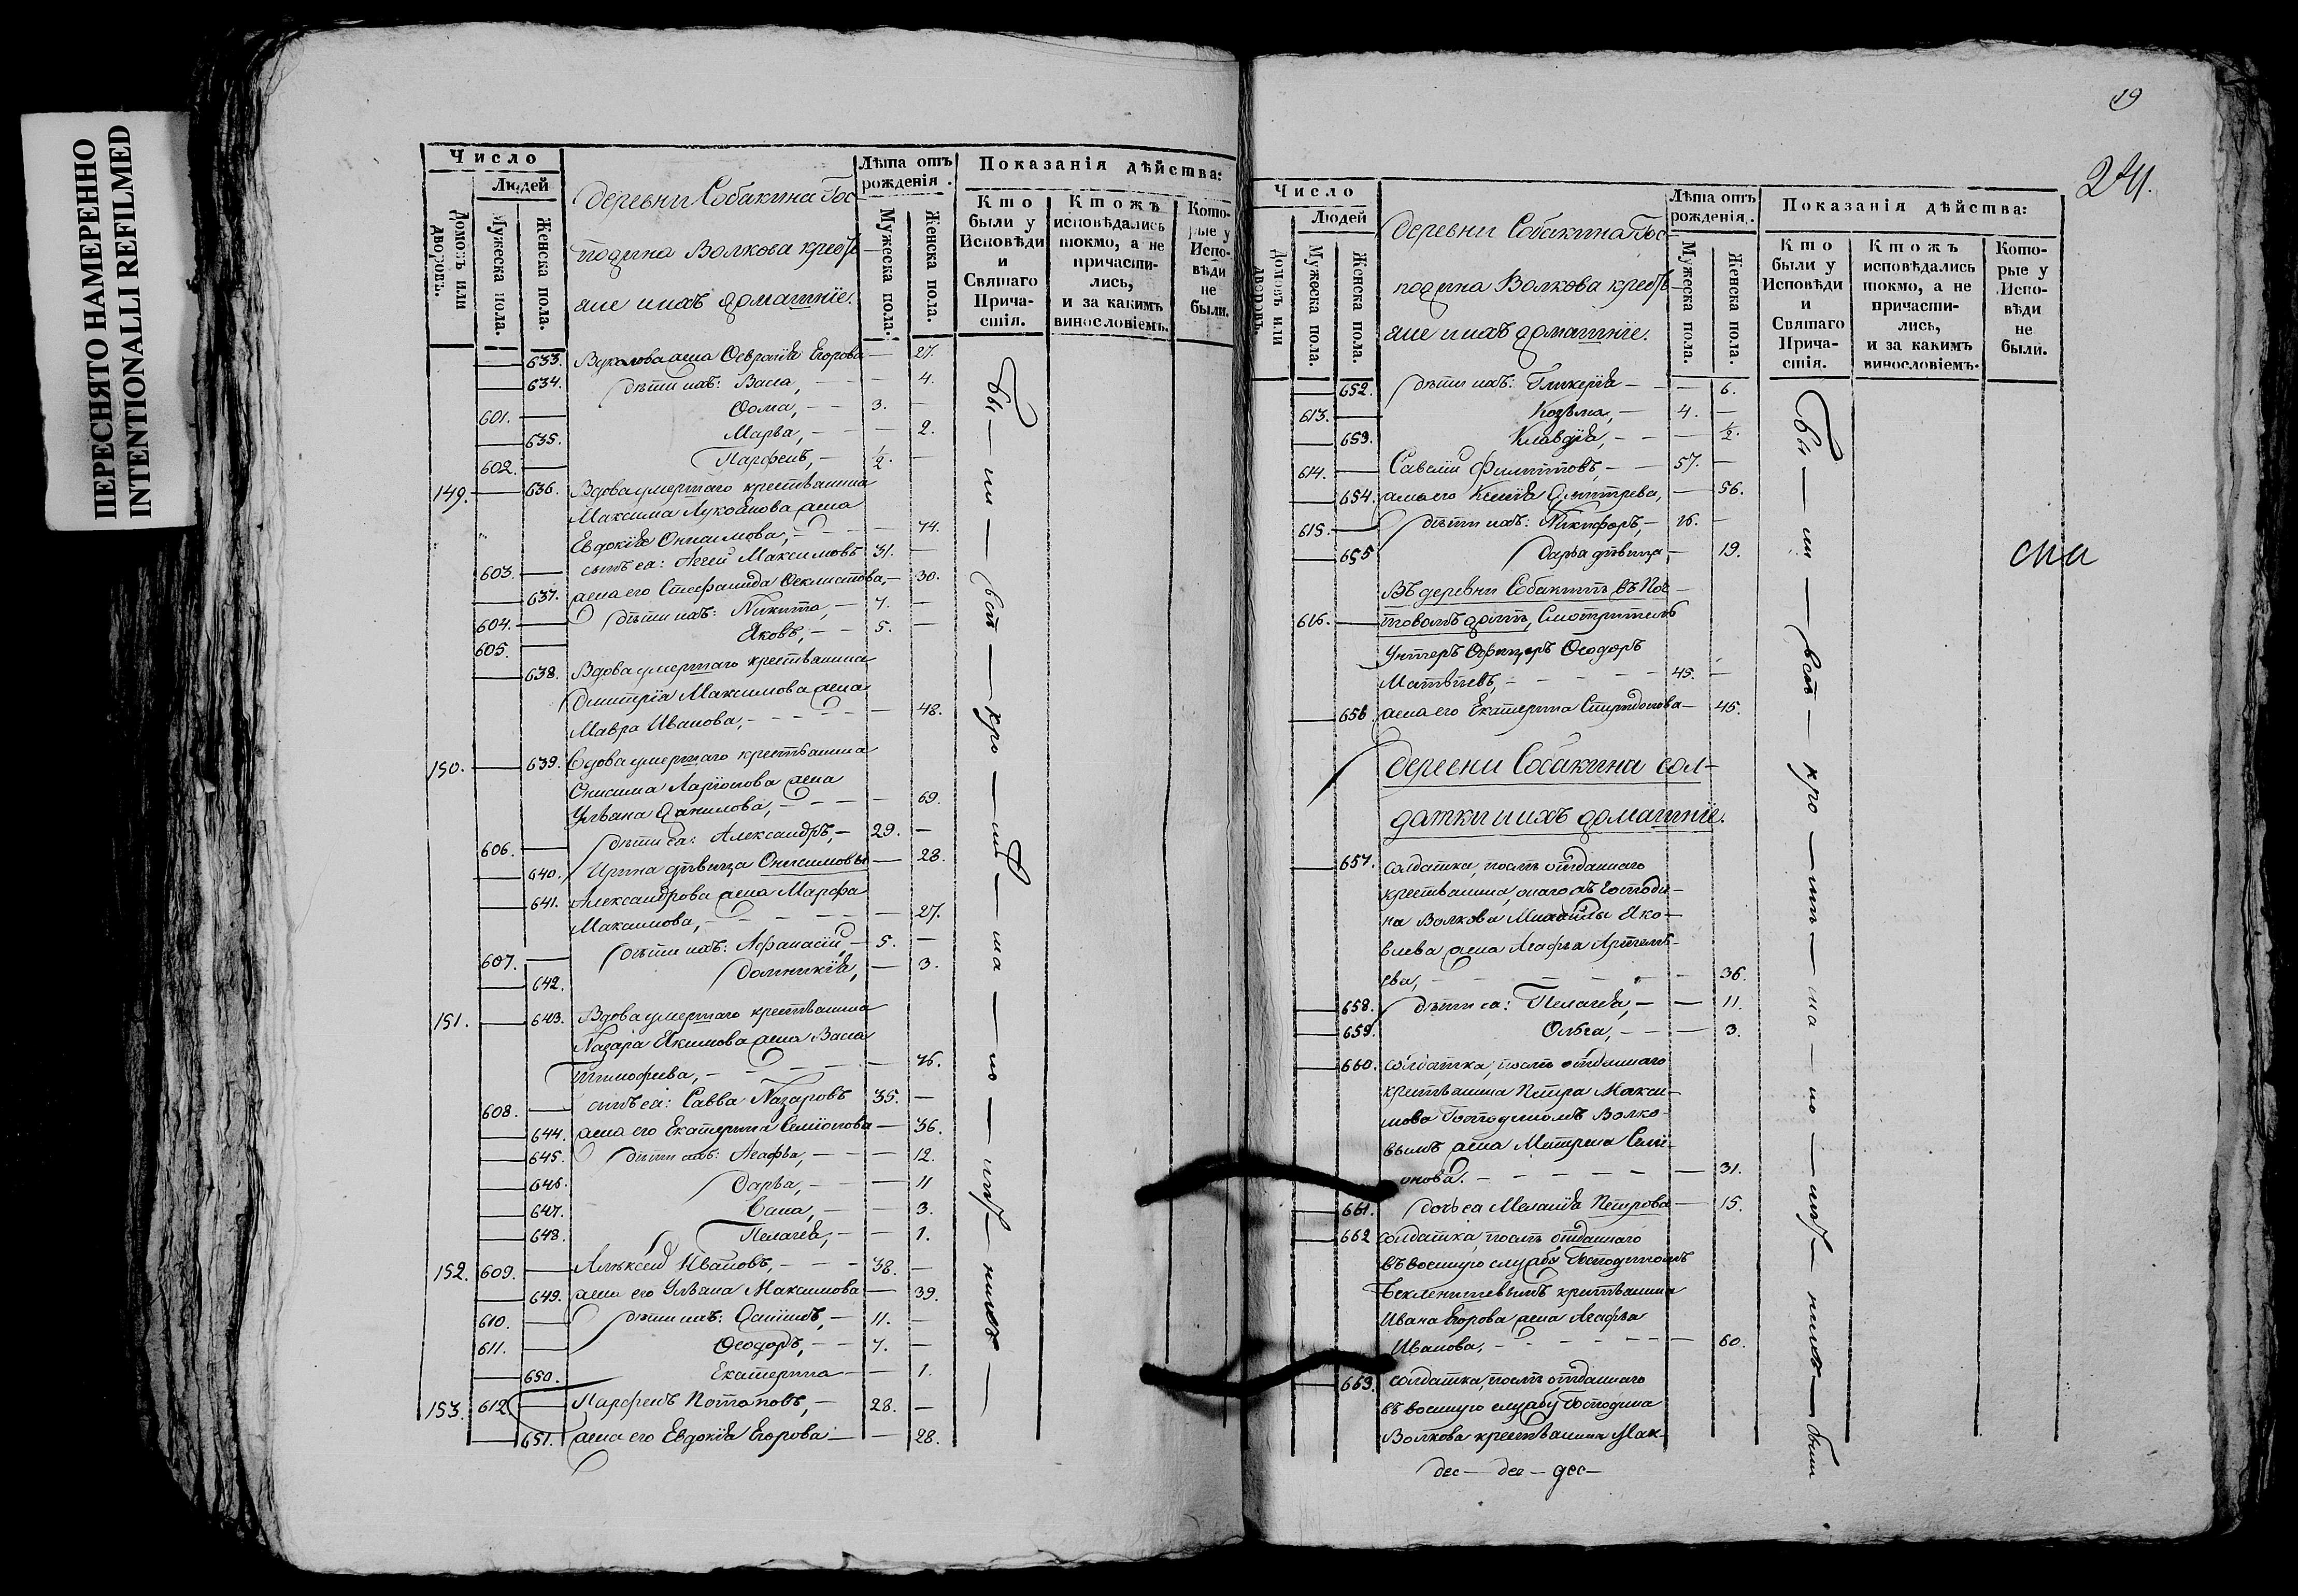 ПЕРЕСНЯТО НАМЕРЕННО
INTENTIONALLI REFILMED
Число
Людей
Домовъ или дворовъ.
Мужеска пола.
Женска пола.
деревни Собакина Гос-
подина Волкова кресть-
яне и ихъ домашніе.
Лѣта отъ рожденія.
Мужеска пола.
Женска пола.
Показанія дѣйства:
Кто были у Исповѣди и Святаго Причастія.
Ктожъ исповѣдались токмо, а не причастились, и за какимъ винословіемъ.
Которые у Исповѣди не были.
633. Вуколова жена Ѳевронія Егорова — 27.
634. дѣти ихъ: Васса, — — 4.
601. — Ѳома, — — 3. —
635. Марѳа, — — 2.
602. — Парфенъ, — ½. —
149. — 636. Вдова умершаго крестьянина
Максима Лукоянова жена
Евдокія Онисимова, — — 74.
603. — сынъ ея: Аггей Максимовъ 31. —
637. жена его Стефанида Ѳеклистова, — 30.
604. — дѣти ихъ: Никита, — 7. —
605. — Яковъ, — — 5. —
638. Вдова умершаго крестьянина
Дмитрія Максимова жена
Мавра Иванова, — — — 48.
150. — 639. Вдова умершаго крестьянина
Онисима Ларіонова жена
Ульяна Данилова, — — — 69.
606. — дѣти ея: Александръ, — 29. —
640. Ирина дѣвица Онисимовы — 28.
641. Александрова жена Марфа
Максимова, — — — — 27.
607. — дѣти ихъ: Афанасій, — 5. —
642. Домникія, — 3.
151. — 643. Вдова умершаго крестьянина
Назара Якимова жена Васса
Тимофеева, — — — — 76.
608. — сынъ ея: Савва Назаровъ 35. —
644. жена его Екатерина Семіонова — 36.
645. дѣти ихъ: Агафья, — — — 12.
646. Дарья, — — 11
647. Анна, — — 3.
648. Пелагія, — — 1.
152. 609. — Алексей Ивановъ, — — — 38. —
649. жена его Ульяна Максимова — 39.
610. — дѣти ихъ: Даніилъ, — 11. —
611. — Ѳеодоръ, — — 7. —
650. Екатерина — — 1.
153. 612. — Парфенъ Потаповъ, — 28. —
651. жена его Евдокія Егорова — — 28.
Бы — ли — всѣ — кро — мѣ — ма — ло — лѣт — нихъ —
19
241.
Число
Людей
Домовъ или дворовъ.
Мужеска пола.
Женска пола.
деревни Собакина Гос-
подина Волкова кресть-
яне и ихъ домашніе.
Лѣта отъ рожденія.
Мужеска пола.
Женска пола.
Показанія дѣйства:
Кто были у Исповѣди и Святаго Причастія.
Ктожъ исповѣдались токмо, а не причастились, и за какимъ винословіемъ.
Которые у Исповѣди не были.
652. дѣти ихъ: Гликерія — — 6.
613. — Козьма, — 4. —
653. Клавдія, — — — ½.
614. — Савелій Филипповъ, — — 57. —
654. жена его Ксенія Дмитрева, — 56.
615. — дѣти ихъ: Никифоръ, — 16. —
655 Дарья дѣвица, — 19.
Въ деревни Собакинѣ въ Поч-
616. — товомъ домѣ, Смотритель
Унтеръ Офицеръ Ѳеодоръ
Матвѣевъ, — — — — — 45. —
656. жена его Екатерина Спиридонова — 45.
деревни Собакина сол-
датки и ихъ домашніе.
657. солдатка, послѣ отданнаго
крестьянина, онаго жъ Господи-
на Волкова Михайлы Яко-
влева жена Агафья Артемь-
ева, — — — — — — 36.
658. дѣти ея: Пелагія, — — 11.
659. Ольга, — — — 3.
660. солдатка, послѣ отданнаго
крестьянина Петра Макси-
мова Господиномъ Волко-
вымъ жена Матрена Семі-
онова. — — — — — — 31.
661. дочь ея Меланія Петрова — 15.
662 солдатка, послѣ отданнаго
въ военную службу Господиномъ
Беклемишевымъ крестьянина
Ивана Егорова жена Агафья
Иванова, — — — — — — 60.
663. солдатка, послѣ отданнаго
въ военную службу Господина
Волкова крестьянина Мак-
Бы — ли — всѣ — кро — мѣ — ма — ло — лѣт — нихъ — были
дес — дес — дес —